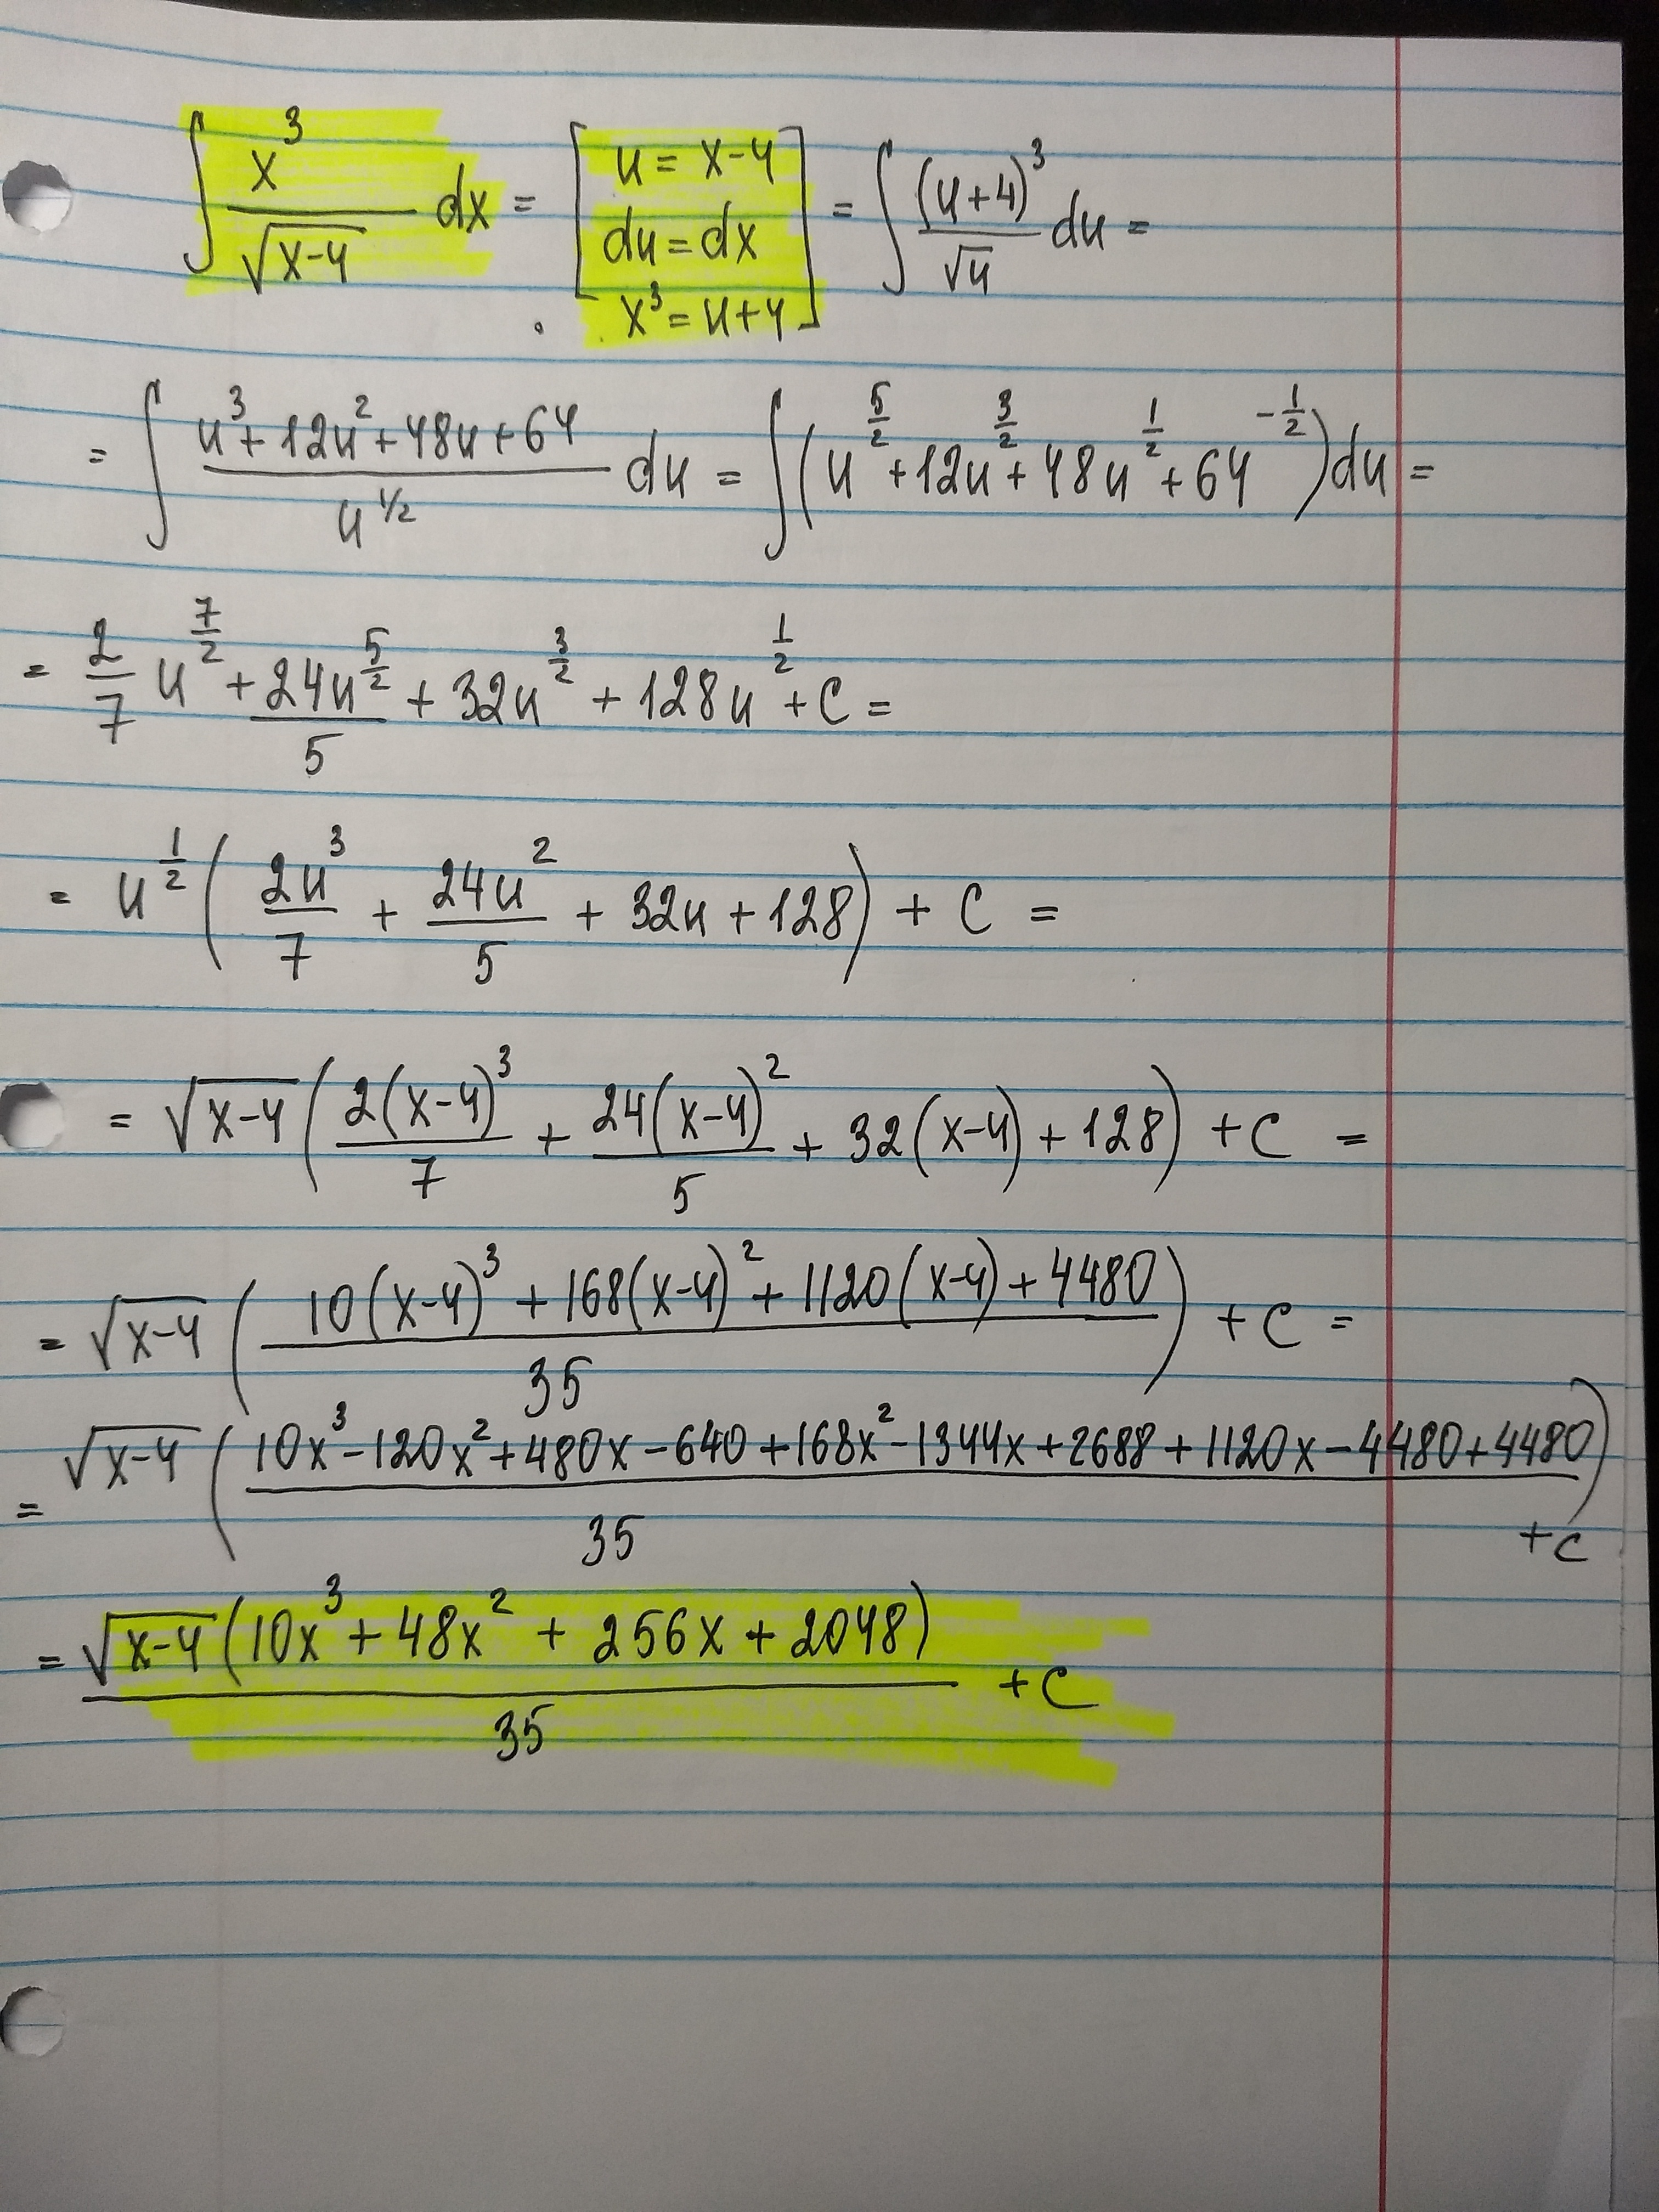 ∫ x³/√(x-4) dx = [ u = x-4 du = dx x³ = u+4 ] = ∫ (u+4)³/√u du =
= ∫ (u³+12u²+48u+64)/u^(1/2) du = ∫(u^(5/2)+12u^(3/2)+48u^(1/2)+64^(-1/2))du =
= 2/7 u^(7/2) + 24u^(5/2)/5 + 32u^(3/2) + 128u^(1/2) + C =
= u^(1/2) (2u³/7 + 24u²/5 + 32u + 128) + C =
= √(x-4) (2(x-4)³/7 + 24(x-4)²/5 + 32(x-4) + 128) + C =
= √(x-4) ((10(x-4)³ + 168(x-4)² + 1120(x-4) + 4480)/35) + C =
= √(x-4) ((10x³-120x²+480x-640+168x²-1344x+2688+1120x-4480+4480)/35) + C
= √(x-4)(10x³ + 48x² + 256x + 2048)/35 + C